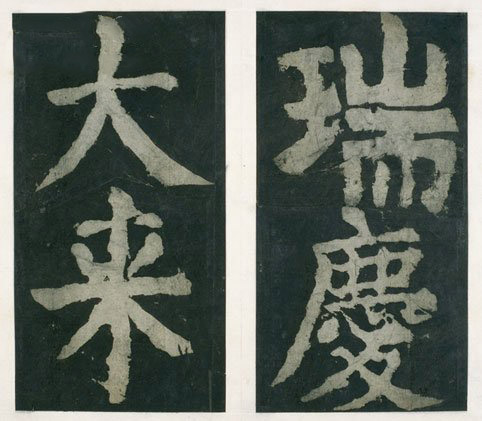 瑞慶
大来